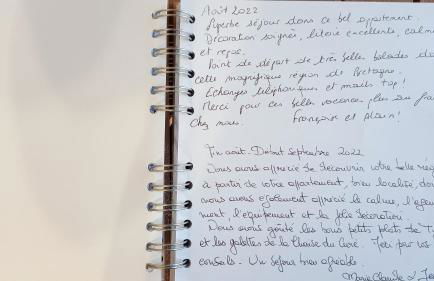 Août 2022
Superbe séjour dans ce bel appartement.
Décoration soignée, literie excellente, calme
et repos.
Point de départ de très belles balades da
cette magnifique région de Bretagne.
Echanges téléphoniques et mails top!
Merci pour ces belles vacances
Chez nous. Françoise et Alain!
Fin août - Début septembre 2022
Nous avons apprécié de découvrir votre belle rég
à partir de votre appartement, bien localisé, do
nous avons également apprécié le calme, l'agen
ment, l'équipement et la jolie décoration.
Nous avons goûté les bons petits plats de
et les galettes de la Chaise du Curé. Merci par vos
conseils - Un séjour très agréable.
Marie Claude &